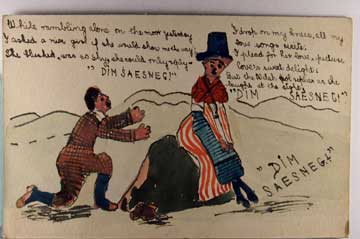 While rambling alone on the moor yesterday
I asked a nice girl if she would show me the way;
She blushed, was so shy she could only reply
"DIM SAESNEG!"
I drop on my knees, all my
love songs recite.
I plead for her love, picture
love's sweet delight.
But the Welsh as she
laughs at the sight
"DIM SAESNEG!"
"DIM
SAESNEG!"